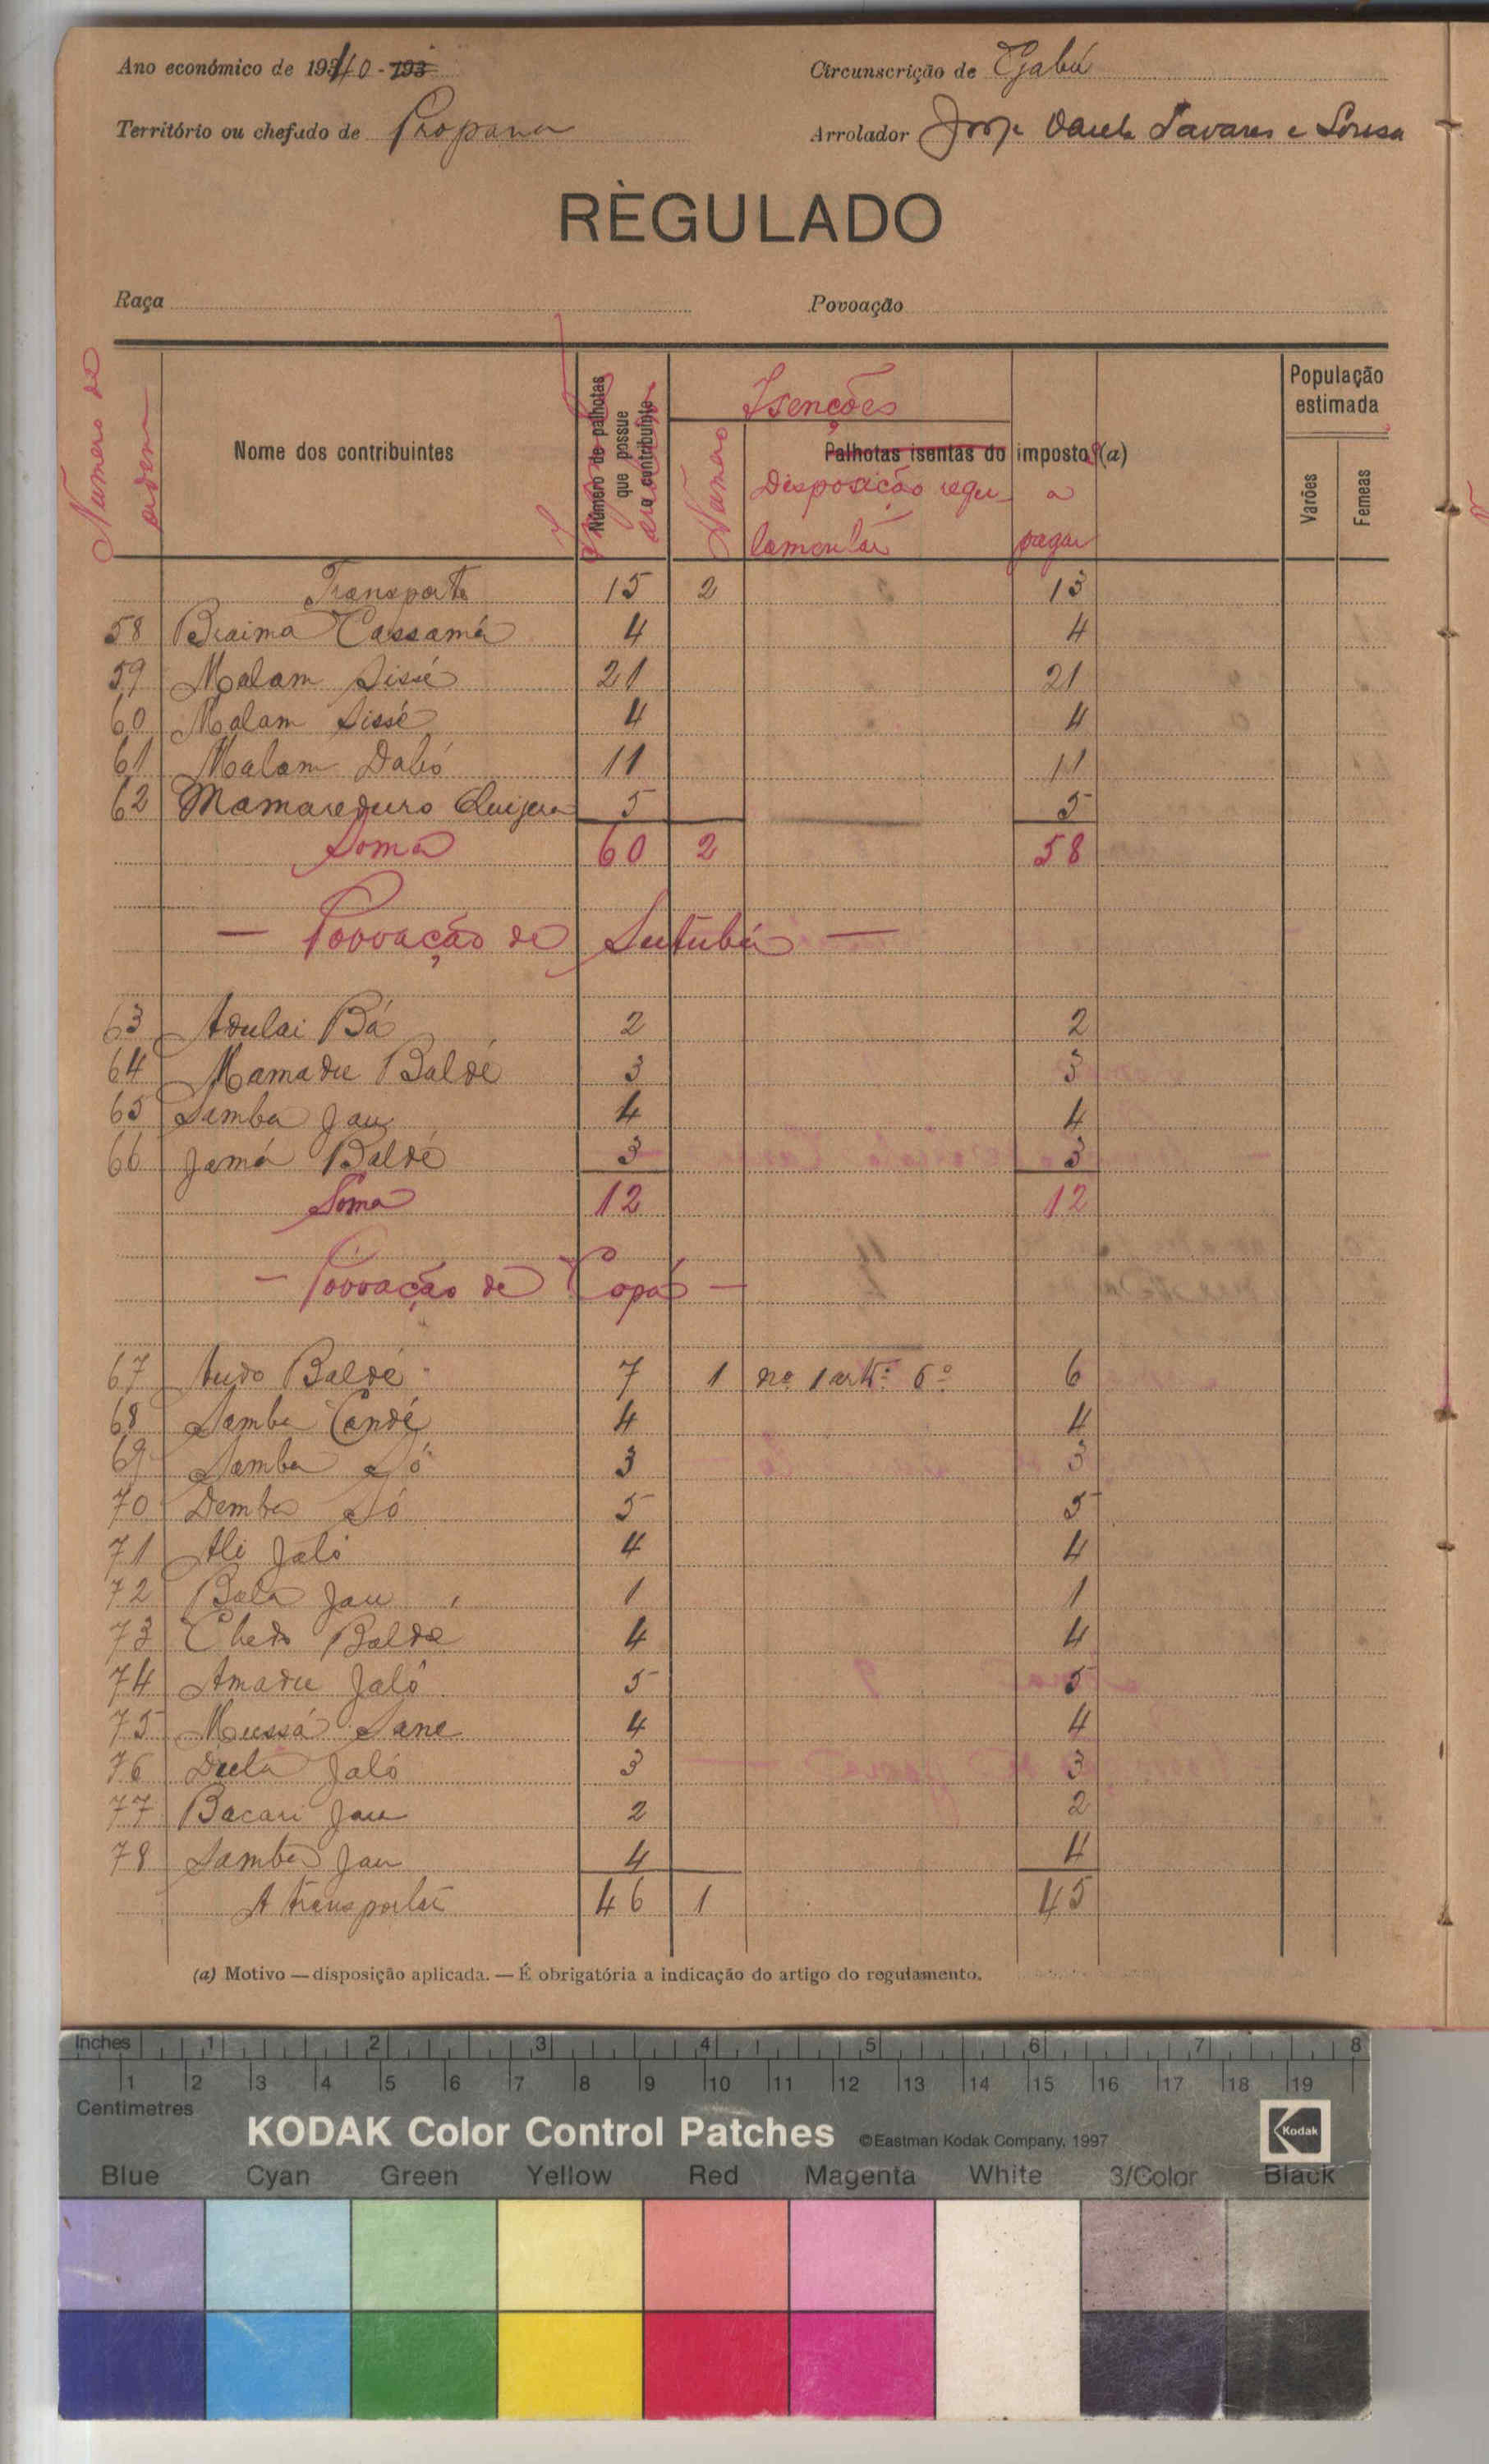 Ano económico de 1940 - 193
Circunscrição de Gabú
Território ou chefado de Propana
Arrolador Jorge Tavares e Sousa
RÈGULADO
Raça
Povoação
Numero de ordem
Nome dos contribuintes
Número de palhotas que possue o contribuinte
Isenções
Número
Palhotas isentas do imposto (a)
Disposição regulamentar
a pagar
População estimada
Varões
Femeas
Transporte 15 2 13
58 Braima Cassamá 4 4
59 Malam Sissé 21 21
60 Malam Sissé 4 4
61 Malam Dabó 11 11
62 5 5
Soma 60 2 58
— Povoação de Sutubá —
63 Adulai Bá 2 2
64 Mamadu Baldé 3 3
65 Samba Jau 4 4
66 Jamá Baldé 3 3
Soma 12 12
— Povoação de Copá —
67 Baldé 7 1 nº 1 artº 6º 6
68 Samba Candé 4 4
69 Samba Só 3 3
70 Demba Só 5 5
71 Ali Jaló 4 4
72 Bala Jau 1 1
73 Chedo Baldé 4 4
74 Amadu Jaló 5 5
75 Mussá Sane 4 4
76 Dula Jaló 3 3
77 Bacari Jau 2 2
78 Samba Jau 4 4
A transportar 46 1 45
(a) Motivo — disposição aplicada. — É obrigatória a indicação do artigo do regulamento.
Inches 1 2 3 4 5 6 7 8
1 2 3 4 5 6 7 8 9 10 11 12 13 14 15 16 17 18 19
Centimetres
KODAK Color Control Patches ©Eastman Kodak Company, 1997 Kodak
Blue Cyan Green Yellow Red Magenta White 3/Color Black